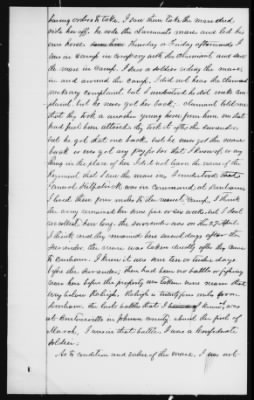 having orders to take. I saw them take the mare and
ride her off. he rode the claimants mare and led his
own horse Thursday or Friday afternoon I
was in camp in company with the claimant and saw
the mare in camp. I saw a soldier riding the mare
in and around the camp. I did not hear the claimant
make any complaint but I understood he did make com
plaint but he never got her back. Claimant told me
that they took a another young horse from him or that
had just been altered. they took it after the surrender
but he got that one back, but he never got the mare
back or ever got any pay for her that I know of or any
thing in the place of her. I did not learn the name of the
Regiment that I saw the mare in. I understood that
General Kilpatrick was in command at Durham
I lived then four miles to the camp. I think
the army remained here five or six weeks but I don't
recollect how long. the surrender was on the April
I think and they remained here several days after the
surrender the mare was taken directly after they came
to Durham. I know it was some ten or twelve days
before the surrender, there had been no battles or fighting
near here before the property was taken near nearer than
way below Raleigh. Raleigh is twenty five miles from
Durham. the last battle that I know was
at Bentonsville in Johnson county about the first of
March, I was in that battle. I was a Confederate
soldier.
As to condition and value of the mare, I can not